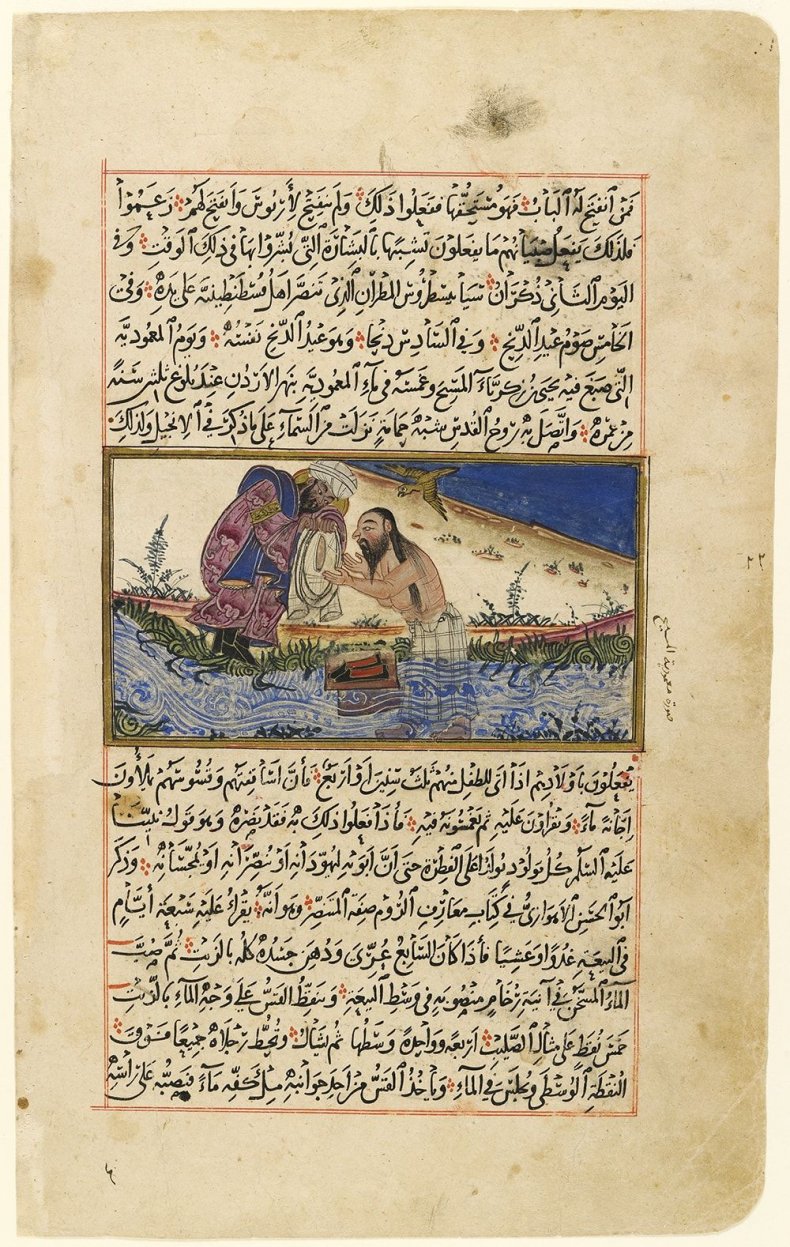 فمن انفتح له الباب فهو مستحقّها ففعلوا ذلك ولم ينفتح لأريوس وانفتح لهم وزعموا
فلذلك يفعل صبيانهم ما يفعلون تشبيها بالبشارة التي بُشّروا بها في ذلك الوقت وفي
اليوم الثاني ذكران المطران الذي تنصّر اهل قسطنطينيّة على يده وفي
الخامس صوم عيد الدنح وفي السادس دنحا وهو عيد الدنح نفسه ويوم المعموديّة
التي صبغ فيه يحيى بن زكريّاء المسيح وغمسه في ماء المعموديّة بنهر الاردن عند بلوغ ثلثين سنة
من عمره واتّصل به روح القدس شبه حمامة نزلت من السماء على ما ذكر في الانجيل ولذلك
صورة معمودية المسيح
٢٢
يفعلون باولاديهم اذا اتى للطفل منهم ثلث سنين او اربع فأنّ اساقفتهم وقسّوسهم يملأون
اجّانة ماء ويقرأون عليه ثم يغمسونه فيه فأذا فعلوا ذلك به فقد نصّره وهو قول نبيّنا
عليه السلم كل مولود يولد على الفطرة حتى أنّ ابويه ليهوّدانه او ينصّرانه او يمجّسانه وذكر
ابو الحسن الاهوازيّ في كتاب معارف الروم صفة المتنصّر وهو انّه يقرأ عليه سبعة أيّام
في البيعة غدوّا وعشيّا فأذا كان السابع عُرّى ودُهن جسده كلّه بالزيت ثمّ صبّ
الماء المسخّن في آنية رخام منصوبه في وسط البيعة وينقّط القسّ على وجه الماء بالزيت
خمس نقط على مثال الصليب اربعه وواحدة وسطها ثم يشال وتُحطّ رجلاه جميعا فوق
النقطة الوسطى ويُجلس في الماء ويأخذ القسّ من احد جوانبه ملء كفّه ماء فيصبّه على راسه